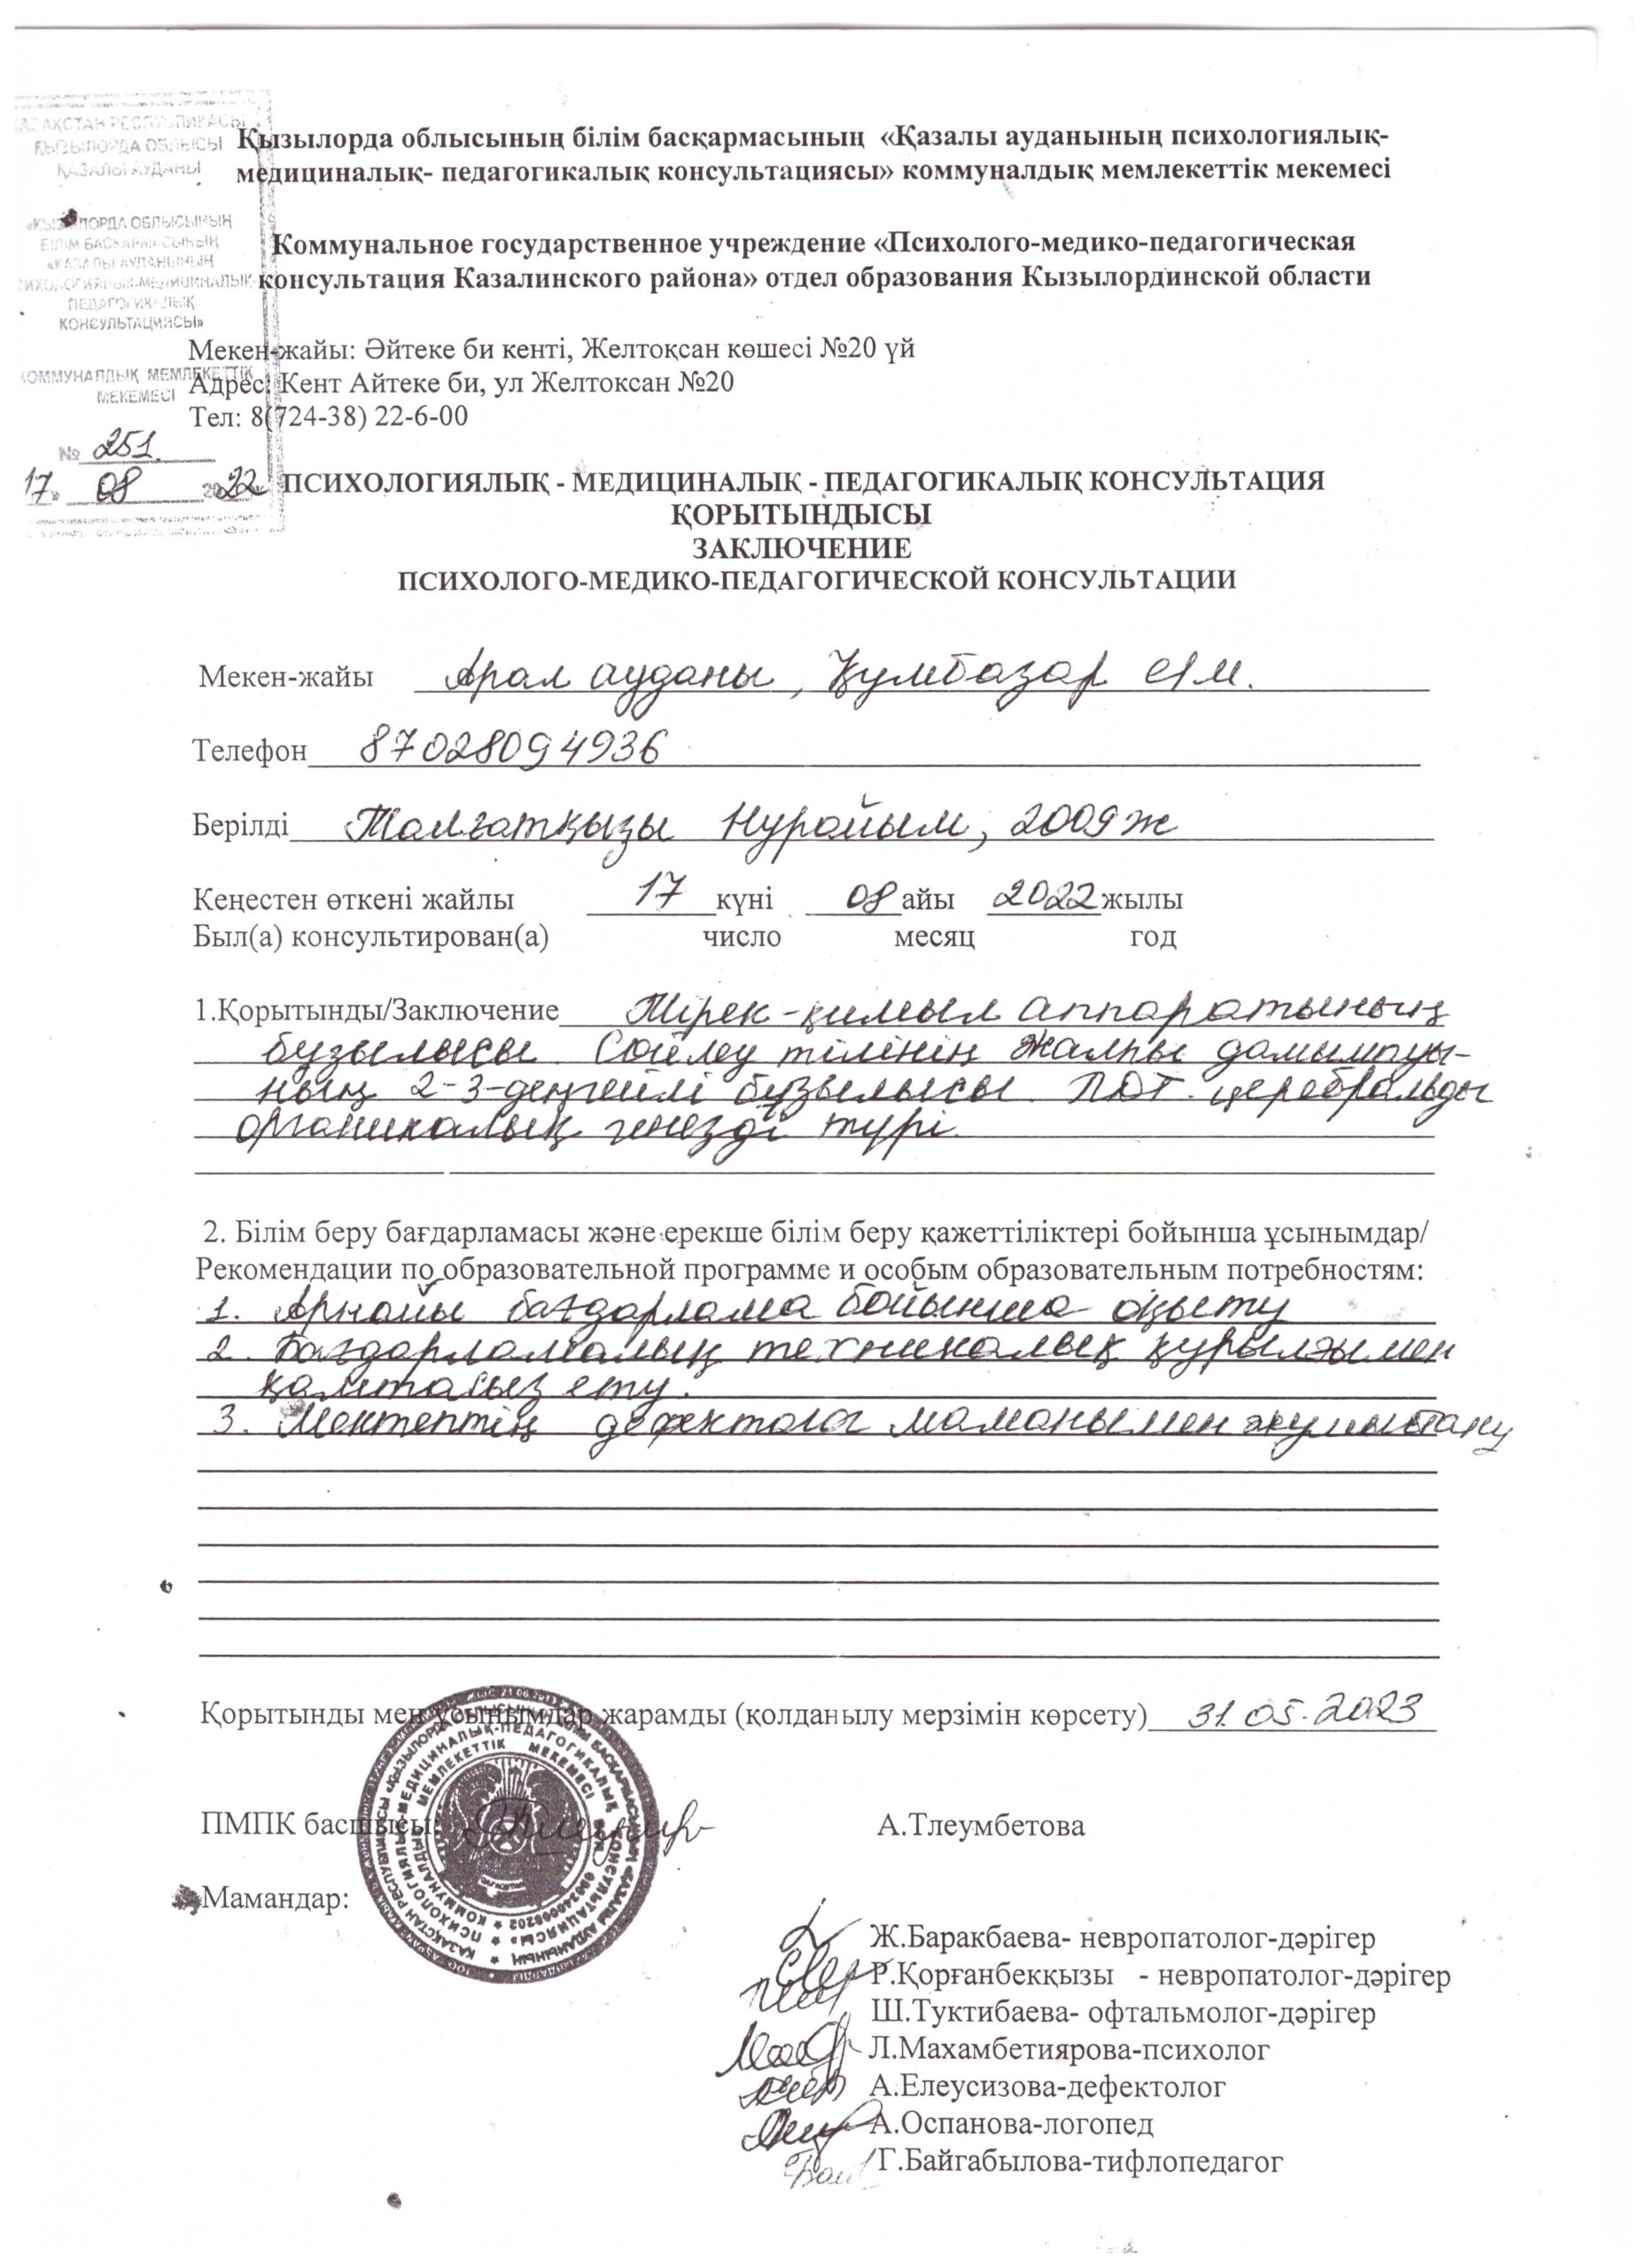 ҚАЗАҚСТАН РЕСПУБЛИКАСЫ
ҚЫЗЫЛОРДА ОБЛЫСЫ
ҚАЗАЛЫ АУДАНЫ
«ҚЫЗЫЛОРДА ОБЛЫСЫНЫҢ
БІЛІМ БАСҚАРМАСЫНЫҢ
«ҚАЗАЛЫ АУДАНЫНЫҢ
ПСИХОЛОГИЯЛЫҚ-МЕДИЦИНАЛЫҚ-
ПЕДАГОГИКАЛЫҚ
КОНСУЛЬТАЦИЯСЫ»
КОММУНАЛДЫҚ МЕМЛЕКЕТТІК
МЕКЕМЕСІ
№ 251.
17» 08 2022
Қызылорда облысының білім басқармасының «Қазалы ауданының психологиялық-
медициналық- педагогикалық консультациясы» коммуналдық мемлекеттік мекемесі
Коммунальное государственное учреждение «Психолого-медико-педагогическая
консультация Казалинского района» отдел образования Кызылординской области
Мекен-жайы: Әйтеке би кенті, Желтоқсан көшесі №20 үй
Адрес: Кент Айтеке би, ул Желтоксан №20
Тел: 8(724-38) 22-6-00
ПСИХОЛОГИЯЛЫҚ - МЕДИЦИНАЛЫҚ - ПЕДАГОГИКАЛЫҚ КОНСУЛЬТАЦИЯ
ҚОРЫТЫНДЫСЫ
ЗАКЛЮЧЕНИЕ
ПСИХОЛОГО-МЕДИКО-ПЕДАГОГИЧЕСКОЙ КОНСУЛЬТАЦИИ
Мекен-жайы Арал ауданы, Құмбазар е/м.
Телефон 87028094936
Берілді Талғатқызы Нурайым, 2009ж
Кеңестен өткені жайлы 17 күні 08 айы 2022 жылы
Был(а) консультирован(а) число месяц год
1.Қорытынды/Заключение Тірек-қимыл аппаратының
бұзылысы. Сөйлеу тілінің жалпы дамымауы-
ның 2-3-деңгейлі бұзылысы. ПДТ. церебральды
органикалық генезді түрі.
2. Білім беру бағдарламасы және ерекше білім беру қажеттіліктері бойынша ұсынымдар/
Рекомендации по образовательной программе и особым образовательным потребностям:
1. Арнайы бағдарлама бойынша оқыту
2. Бағдарламалық техникалық құрылғымен
қамтасыз ету.
3. Мектептің дефектолог маманымен жумыстану
Қорытынды мен ұсынымдар жарамды (қолданылу мерзімін көрсету) 31.05.2023
ПМПК басшысы: А.Тлеумбетова
Мамандар:
Ж.Баракбаева- невропатолог-дәрігер
Р.Қорғанбекқызы - невропатолог-дәрігер
Ш.Туктибаева- офтальмолог-дәрігер
Л.Махамбетиярова-психолог
А.Елеусизова-дефектолог
А.Оспанова-логопед
Г.Байгабылова-тифлопедагог